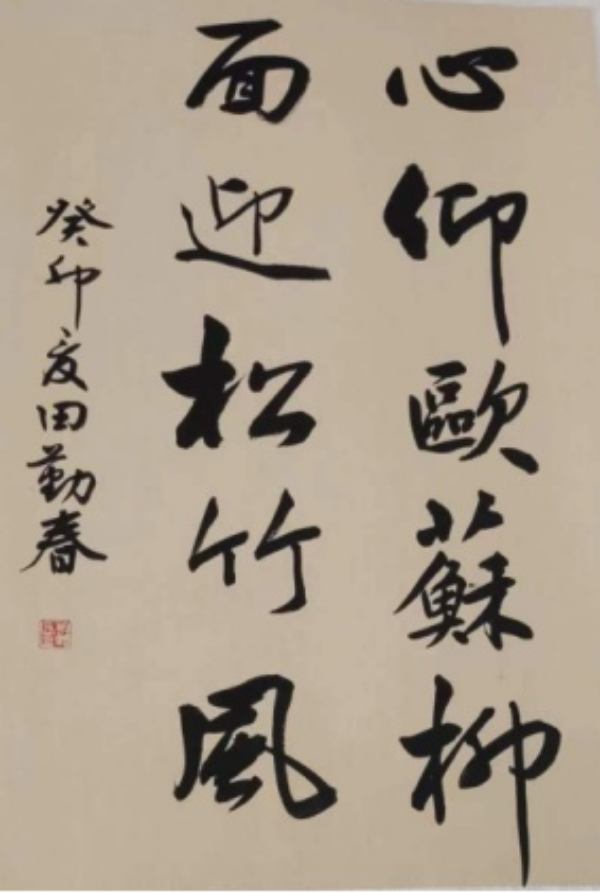 心仰歐蘇柳
面迎松竹風
癸卯夏田勤春